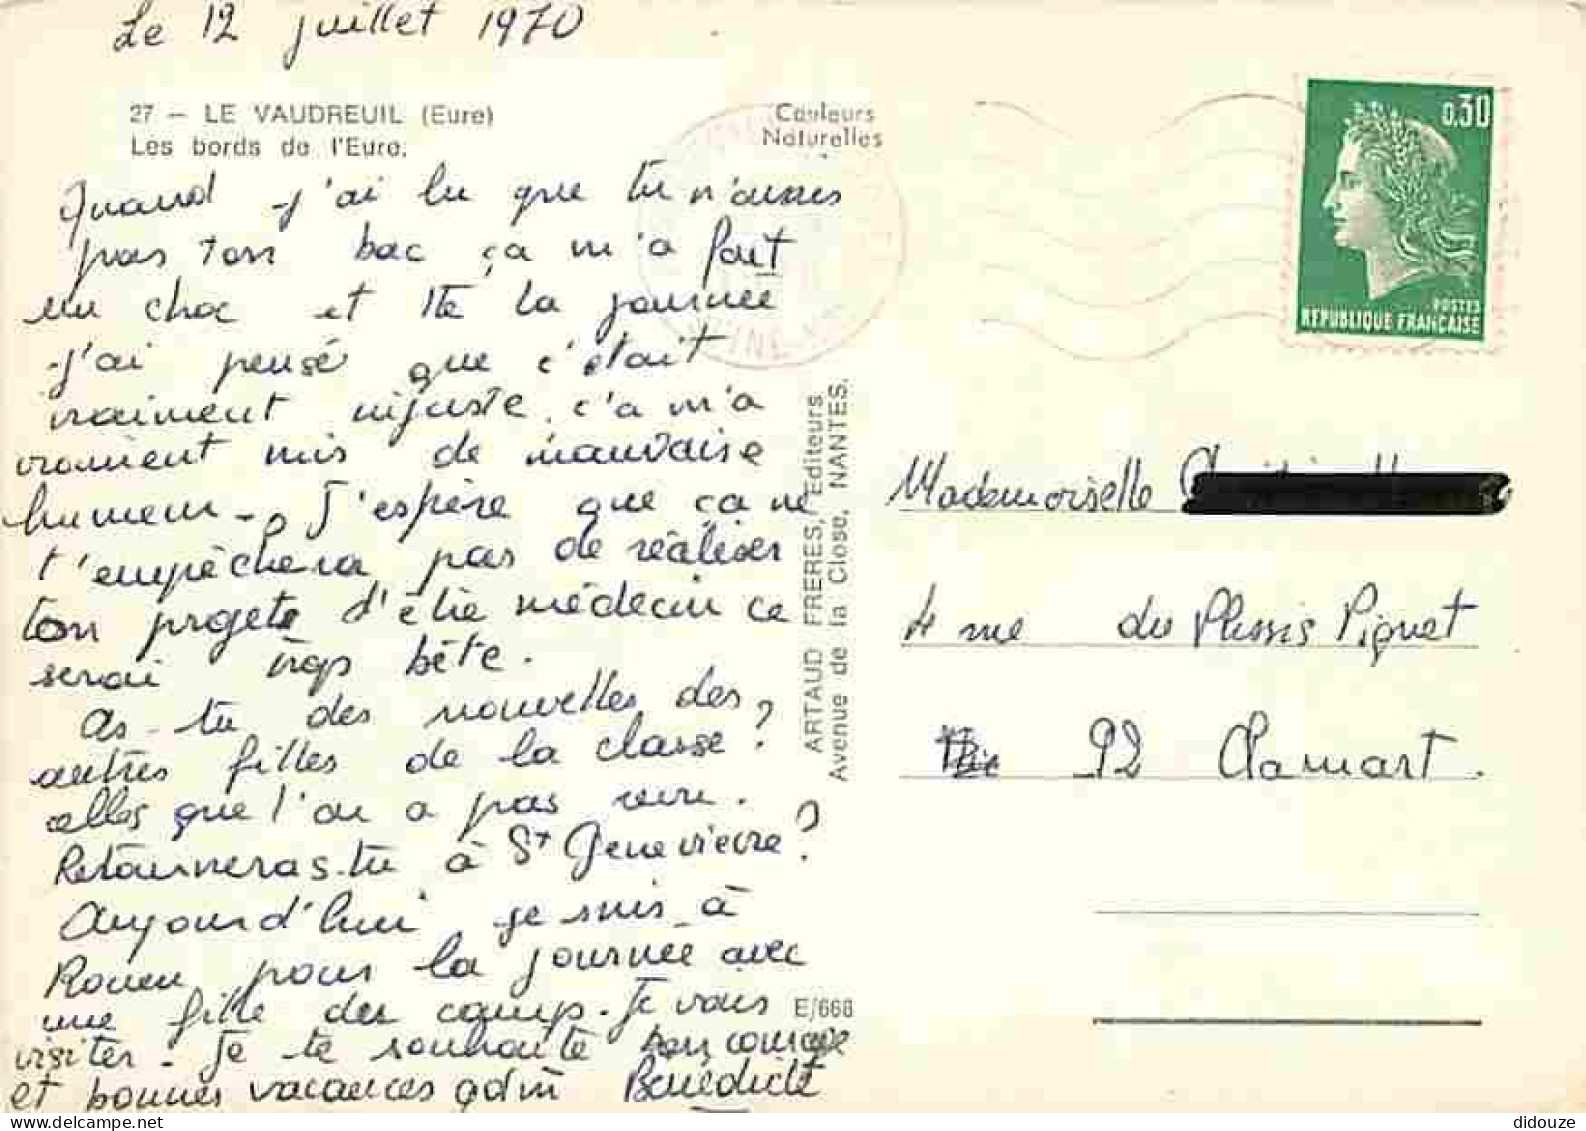 Le 12 juillet 1970
27 – LE VAUDREUIL (Eure)
Les bords de l'Eure.
Couleurs
Naturelles
0,30
POSTES
RÉPUBLIQUE FRANÇAISE
Quand j'ai lu que tu n'avais
pas ton bac ça m'a fait
un choc et tte la journée
j'ai pensé que c'était
vraiment injuste. c'a m'a
vraiment mis de mauvaise
humeur. J'espère que ça ne
t'empêchera pas de réaliser
ton projet d'être médecin ce
serai bête.
As-tu des nouvelles des
autres filles de la classe?
celles que l'on a pas revu.
Retourneras-tu à St Geneviève?
Aujourd'hui je suis à
Rouen pour la journée avec
une fille du camp. Je vais
visiter. Je te souhaite bon courage
et bonnes vacances Bénédicte
ARTAUD FRERES, Editeurs
Avenue de la Close, NANTES.
E/668
Mademoiselle
4 rue du Plessis Piquet
92 Clamart.
didouze